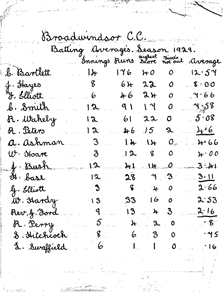 Broadwindsor C.C.
Batting Averages. Season 1929.
Innings Runs Highest Score Times Not Out Average
C. Bartlett 14 176 40 0 12.57
J. Hayes 8 64 22 0 8.00
F. Elliott 6 46 24 0 7.66
C. Smith 12 91 17 0 7.58
R. Wakely 12 61 22 0 5.08
R. Peters 12 46 15 2 4.6
A. Ashman 3 14 14 0 4.66
W. Hoare 3 12 8 0 4.00
J. Bush 12 41 14 0 3.41
H. Case 12 28 7 3 3.11
G. Elliott 3 8 4 0 2.66
W. Hardy 13 33 16 0 2.53
Rev. J. Ford 9 13 4 3 2.16
R. Perry 5 4 2 0 .8
S. Hitchcock 8 6 3 0 .75
L. Swaffield 6 1 1 0 .16